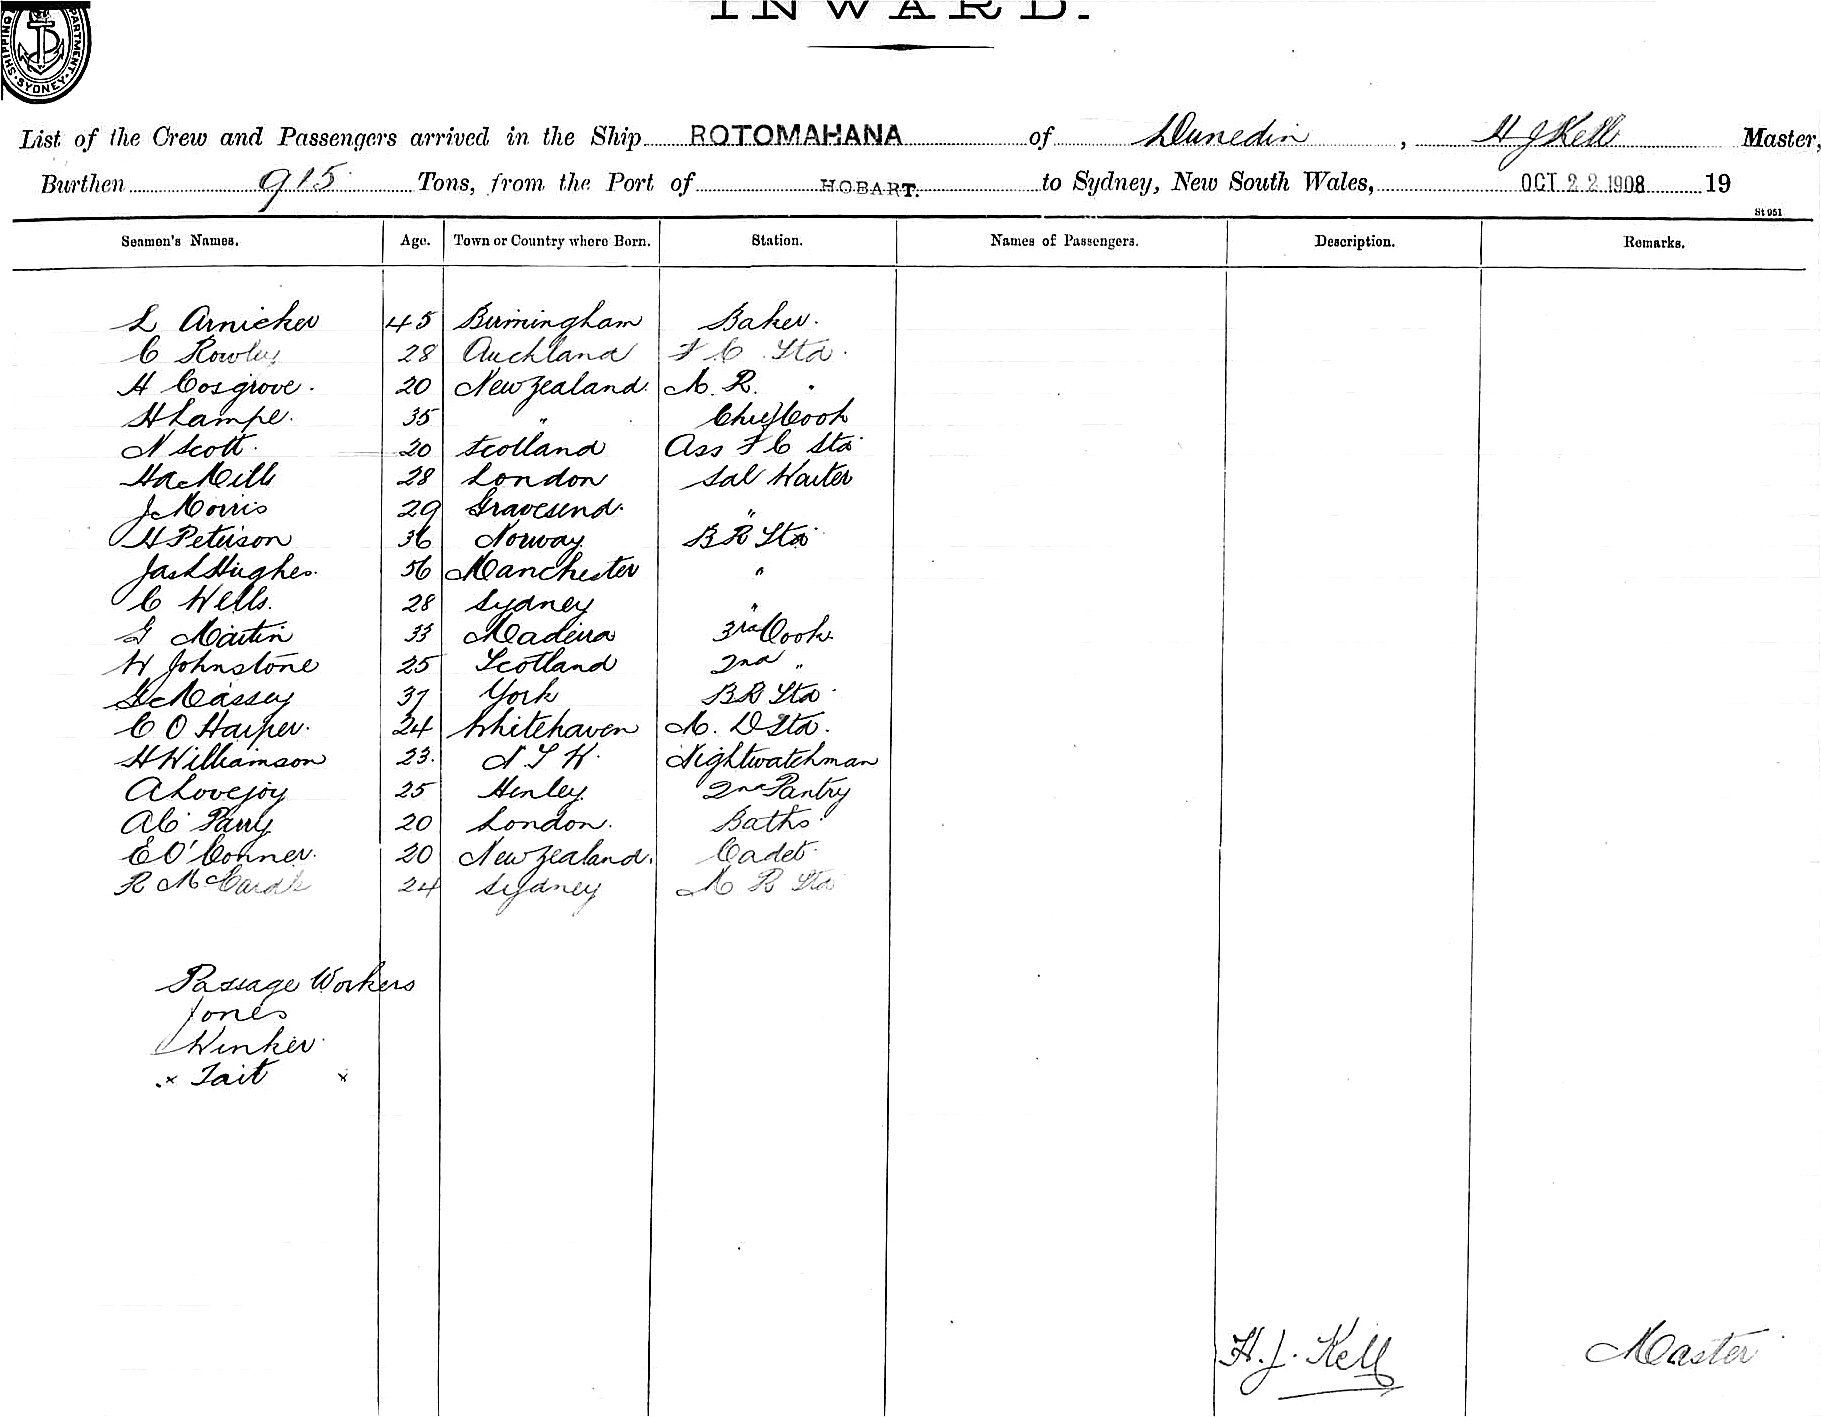 INWARD.
SHIPPING DEPARTMENT. SYDNEY
List of the Crew and Passengers arrived in the Ship ROTOMAHANA of Dunedin, H J Kell Master,
Burthen 915 Tons, from the Port of HOBART. to Sydney, New South Wales, OCT 22 1908 19
St 951
Seamen's Names. Age. Town or Country where Born. Station. Names of Passengers. Description. Remarks.
L Arnicker 45 Birmingham Baker.
C Rowley 28 Auckland F C Std.
H Cosgrove. 20 New Zealand. M. R. "
H Lampe. 35 " Chief Cook
N Scott. 20 Scotland Ass F C Std
H A Mills 28 London Sal Waiter
J Morris 29 Gravesend. "
H Peterson 36 Norway. B R Std
Jas L Hughes. 56 Manchester "
C Wells. 28 Sydney "
G Martin 33 Madeira 3rd Cook.
W Johnstone 25 Scotland 2nd "
G Massey 37 York B R Std.
C O Harper. 24 Whitehaven M. D Std.
H Williamson 23. N S W. Nightwatchman
A Lovejoy 25 Henley. 2nd Pantry
A C Parry 20 London. Baths
E O'Conner. 20 New Zealand. Cadet.
R McCardle 24 Sydney M R Std
Passage Workers
Jones
Winker.
x Tait x
H. J. Kell Master